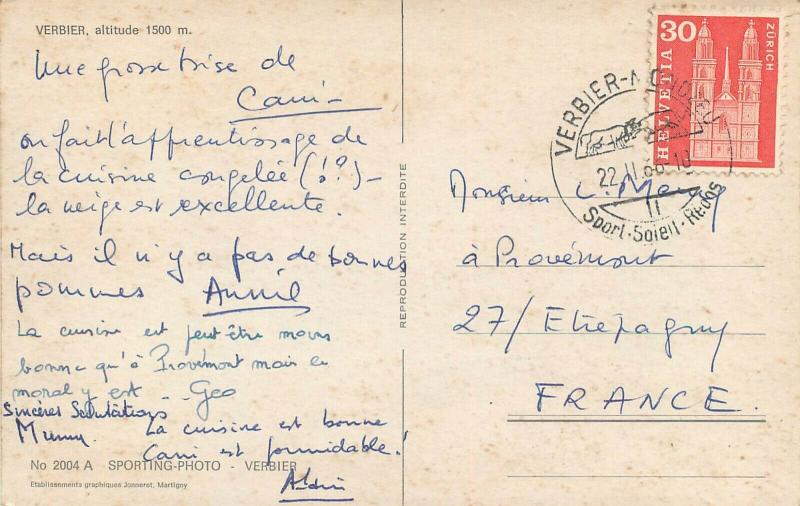 VERBIER, altitude 1500 m.
Une grosse bise de
Cani-
on fait l'apprentissage de
la cuisine congelée (!?)-
la neige est excellente.
Mais il n'y a pas de bonnes
pommes Annie
La cuisine est peut-être moins
bonne qu'à Provémont mais le
moral y est - Geo
Sincères Salutations
Mumm. La cuisine est bonne
Cani est formidable!
No 2004 A SPORTING-PHOTO - VERBIER
Etablissements graphiques Jonneret, Martigny
REPRODUCTION INTERDITE
30
ZÜRICH
HELVETIA
VERBIER
22.11.66-10
11
Sport-Soleil-Repos
Monsieur L.
à Provémont
27/ Etrepagny
FRANCE.